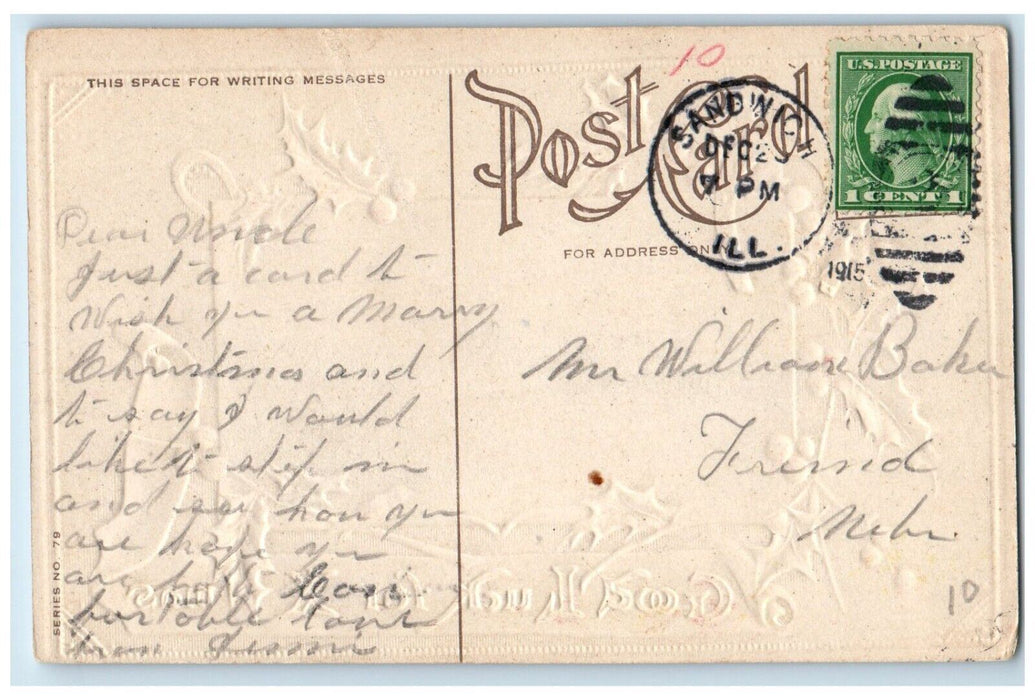 THIS SPACE FOR WRITING MESSAGES
Post Card
FOR ADDRESS ONLY
10
SANDWICH
DEC 2
7 PM
ILL.
1915
U.S. POSTAGE
1 CENT 1
Dear Uncle
Just a card to
Wish you a Marry
Christmas and
to say I would
like to step in
and see how you
are hope you
are
from
Mr William Baker
Friend
Nebr.
10
SERIES NO 79